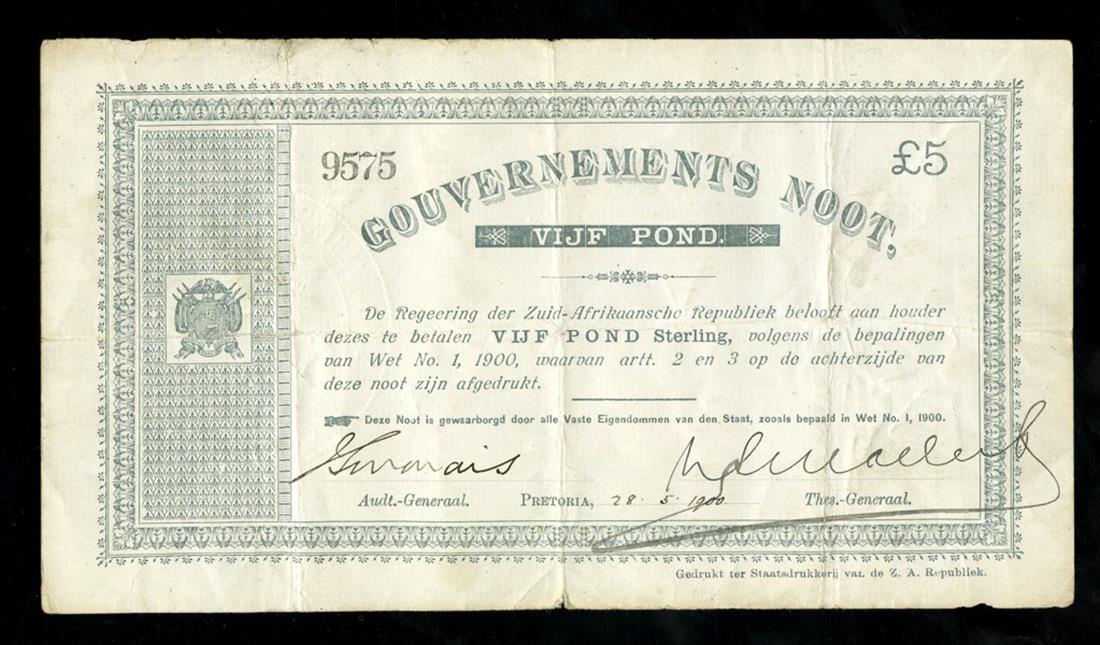 9575
£5
GOUVERNEMENTS NOOT,
VIJF POND.
De Regeering der Zuid-Afrikaansche Republiek belooft aan houder
dezes te betalen VIJF POND Sterling, volgens de bepalingen
van Wet No. 1, 1900, waarvan artt. 2 en 3 op de achterzijde van
deze noot zijn afgedrukt.
Deze Noot is gewaarborgd door alle Vaste Eigendommen van den Staat, zooals bepaald in Wet No. 1, 1900.
Audt.-Generaal. PRETORIA, 28. 5. 1900. Thes.-Generaal.
Gedrukt ter Staatsdrukkerij van de Z. A. Republiek.